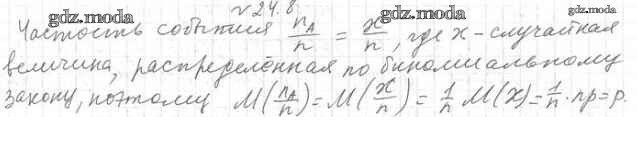 №24.8
gdz.moda gdz.moda
Частость события n_A/n = x/n, где x - случайная
величина, распределённая по биномиальному
закону, поэтому M(n_A/n) = M(x/n) = 1/n M(x) = 1/n · np = p.
gdz.moda gdz.moda